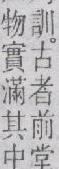 訓。古者前堂
物實滿其中